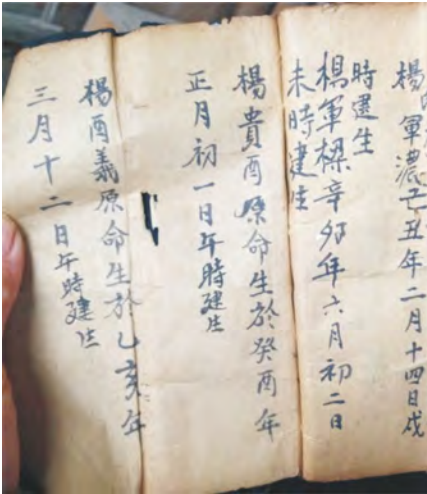 楊軍濃己丑年二月十四日戌
時建生
楊軍樑辛卯年六月初二日
未時建生
楊貴酉原命生於癸酉年
正月初一日午時建生
楊酉義原命生於乙亥年
三月十二日午時建生